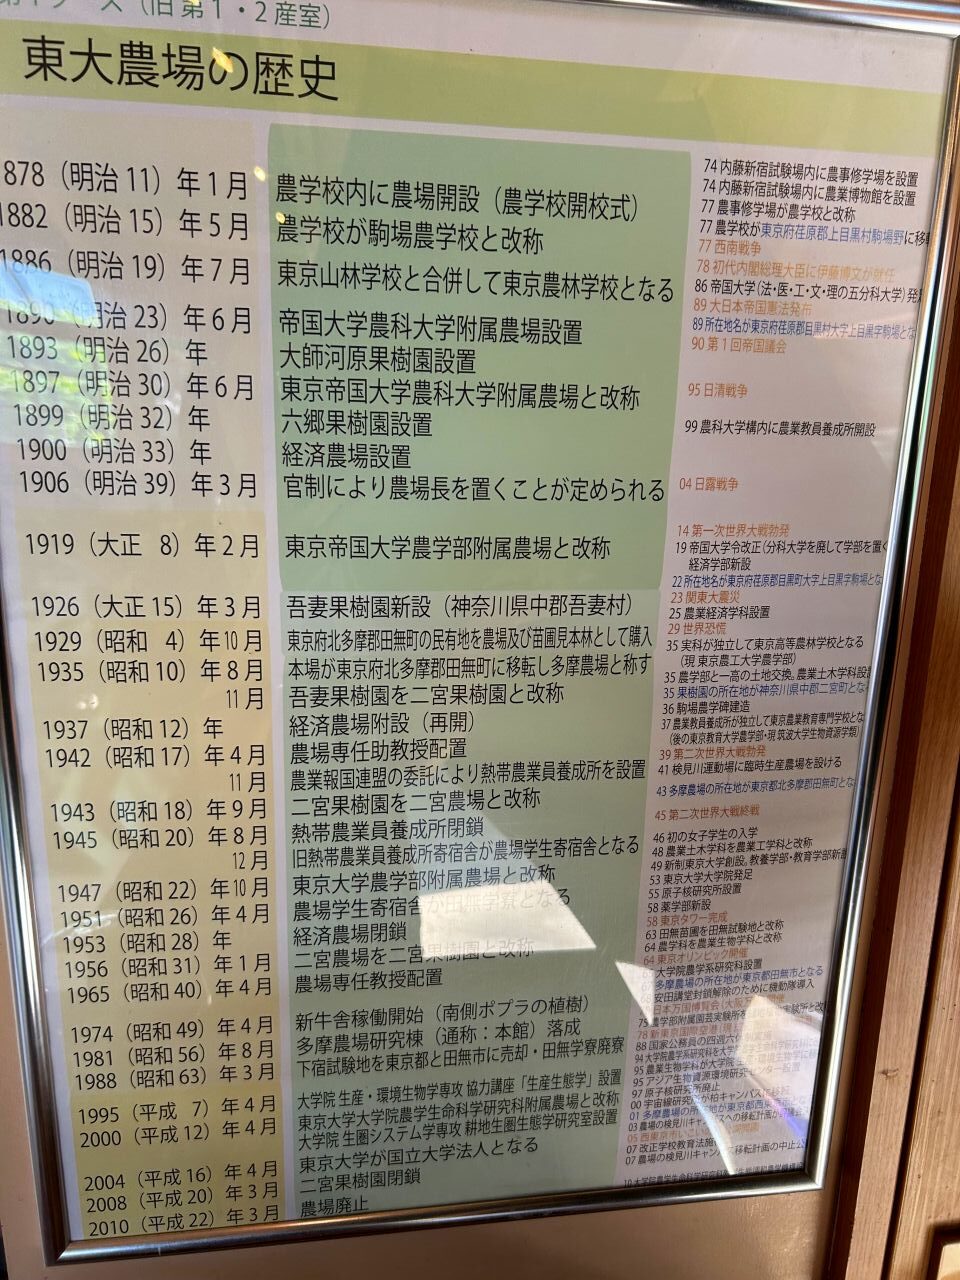 （旧 第１・２産室）
東大農場の歴史
1878（明治 11）年 1 月 農学校内に農場開設（農学校開校式）
1882（明治 15）年 5 月 農学校が駒場農学校と改称
1886（明治 19）年 7 月 東京山林学校と合併して東京農林学校となる
1890（明治 23）年 6 月 帝国大学農科大学附属農場設置
1893（明治 26）年 大師河原果樹園設置
1897（明治 30）年 6 月 東京帝国大学農科大学附属農場と改称
1899（明治 32）年 六郷果樹園設置
1900（明治 33）年 経済農場設置
1906（明治 39）年 3 月 官制により農場長を置くことが定められる
1919（大正 8）年 2 月 東京帝国大学農学部附属農場と改称
1926（大正 15）年 3 月 吾妻果樹園新設（神奈川県中郡吾妻村）
1929（昭和 4）年 10 月 東京府北多摩郡田無町の民有地を農場及び苗圃見本林として購入
1935（昭和 10）年 8 月 本場が東京府北多摩郡田無町に移転し多摩農場と称す
11 月 吾妻果樹園を二宮果樹園と改称
1937（昭和 12）年 経済農場附設（再開）
1942（昭和 17）年 4 月 農場専任助教授配置
11 月 農業報国連盟の委託により熱帯農業員養成所を設置
1943（昭和 18）年 9 月 二宮果樹園を二宮農場と改称
1945（昭和 20）年 8 月 熱帯農業員養成所閉鎖
12 月 旧熱帯農業員養成所寄宿舎が農場学生寄宿舎となる
1947（昭和 22）年 10 月 東京大学農学部附属農場と改称
1951（昭和 26）年 4 月 農場学生寄宿舎が田無学寮となる
1953（昭和 28）年 経済農場閉鎖
1956（昭和 31）年 1 月 二宮農場を二宮果樹園と改称
1965（昭和 40）年 4 月 農場専任教授配置
1974（昭和 49）年 4 月 新牛舎稼働開始（南側ポプラの植樹）
1981（昭和 56）年 8 月 多摩農場研究棟（通称：本館）落成
1988（昭和 63）年 3 月 下宿試験地を東京都と田無市に売却・田無学寮廃寮
1995（平成 7）年 4 月 大学院 生産・環境生物学専攻 協力講座「生産生態学」設置
2000（平成 12）年 4 月 東京大学大学院農学生命科学研究科附属農場と改称
大学院 生圏システム学専攻 耕地生圏生態学研究室設置
2004（平成 16）年 4 月 東京大学が国立大学法人となる
2008（平成 20）年 3 月 二宮果樹園閉鎖
2010（平成 22）年 3 月 農場廃止
74 内藤新宿試験場内に農事修学場を設置
74 内藤新宿試験場内に農業博物館を設置
77 農事修学場が農学校と改称
77 農学校が東京府荏原郡上目黒村駒場野に移
77 西南戦争
78 初代内閣総理大臣に伊藤博文が就任
86 帝国大学（法・医・工・文・理の五分科大学）発
89 大日本帝国憲法発布
89 所在地名が東京府荏原郡目黒村大字上目黒字駒場とな
90 第１回帝国議会
95 日清戦争
99 農科大学構内に農業教員養成所開設
04 日露戦争
14 第一次世界大戦勃発
19 帝国大学令改正（分科大学を廃して学部を置く
経済学部新設
22 所在地名が東京府荏原郡目黒町大字上目黒字駒場とな
23 関東大震災
25 農業経済学科設置
29 世界恐慌
35 実科が独立して東京高等農林学校となる
（現 東京農工大学農学部）
35 農学部と一高の土地交換。農業土木学科設
35 果樹園の所在地が神奈川県中郡二宮町とな
36 駒場農学碑建造
37 農業教員養成所が独立して東京農業教育専門学校とな
（後の東京教育大学農学部・現 筑波大学生物資源学類）
39 第二次世界大戦勃発
41 検見川運動場に臨時生産農場を設ける
43 多摩農場の所在地が東京都北多摩郡田無町とな
45 第二次世界大戦終戦
46 初の女子学生の入学
48 農業土木学科を農業工学科と改称
49 新制東京大学創設。教養学部・教育学部新
53 東京大学大学院発足
55 原子核研究所設置
58 薬学部新設
58 東京タワー完成
63 田無苗圃を田無試験地と改称
64 農学科を農業生物学科と改称
64 東京オリンピック開催
大学院農学系研究科設置
多摩農場の所在地が東京都田無市となる
安田講堂封鎖解除のために機動隊導入
日本万国博覧会（大阪
75 農学部附属園芸実験所を
78 新東京国際空港
88 国家公務員の四週六
94 大学院農学系研究科を大学
95 農業生物学科が
95 アジア生物資源環境研究センター設置
97 原子核研究所廃止
00 宇宙線研究所が柏キャンパスに移転
01 多摩農場の所在地が東京都西東京市
03 農場の検見川キャンパスへの移転計画が
05 西東京市
07 改正学校教育法施
07 農場の検見川キャンパス移転計画の中止